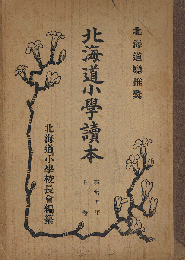 北海道廳推奬
北海道小學讀本
北海道小學校長會編纂